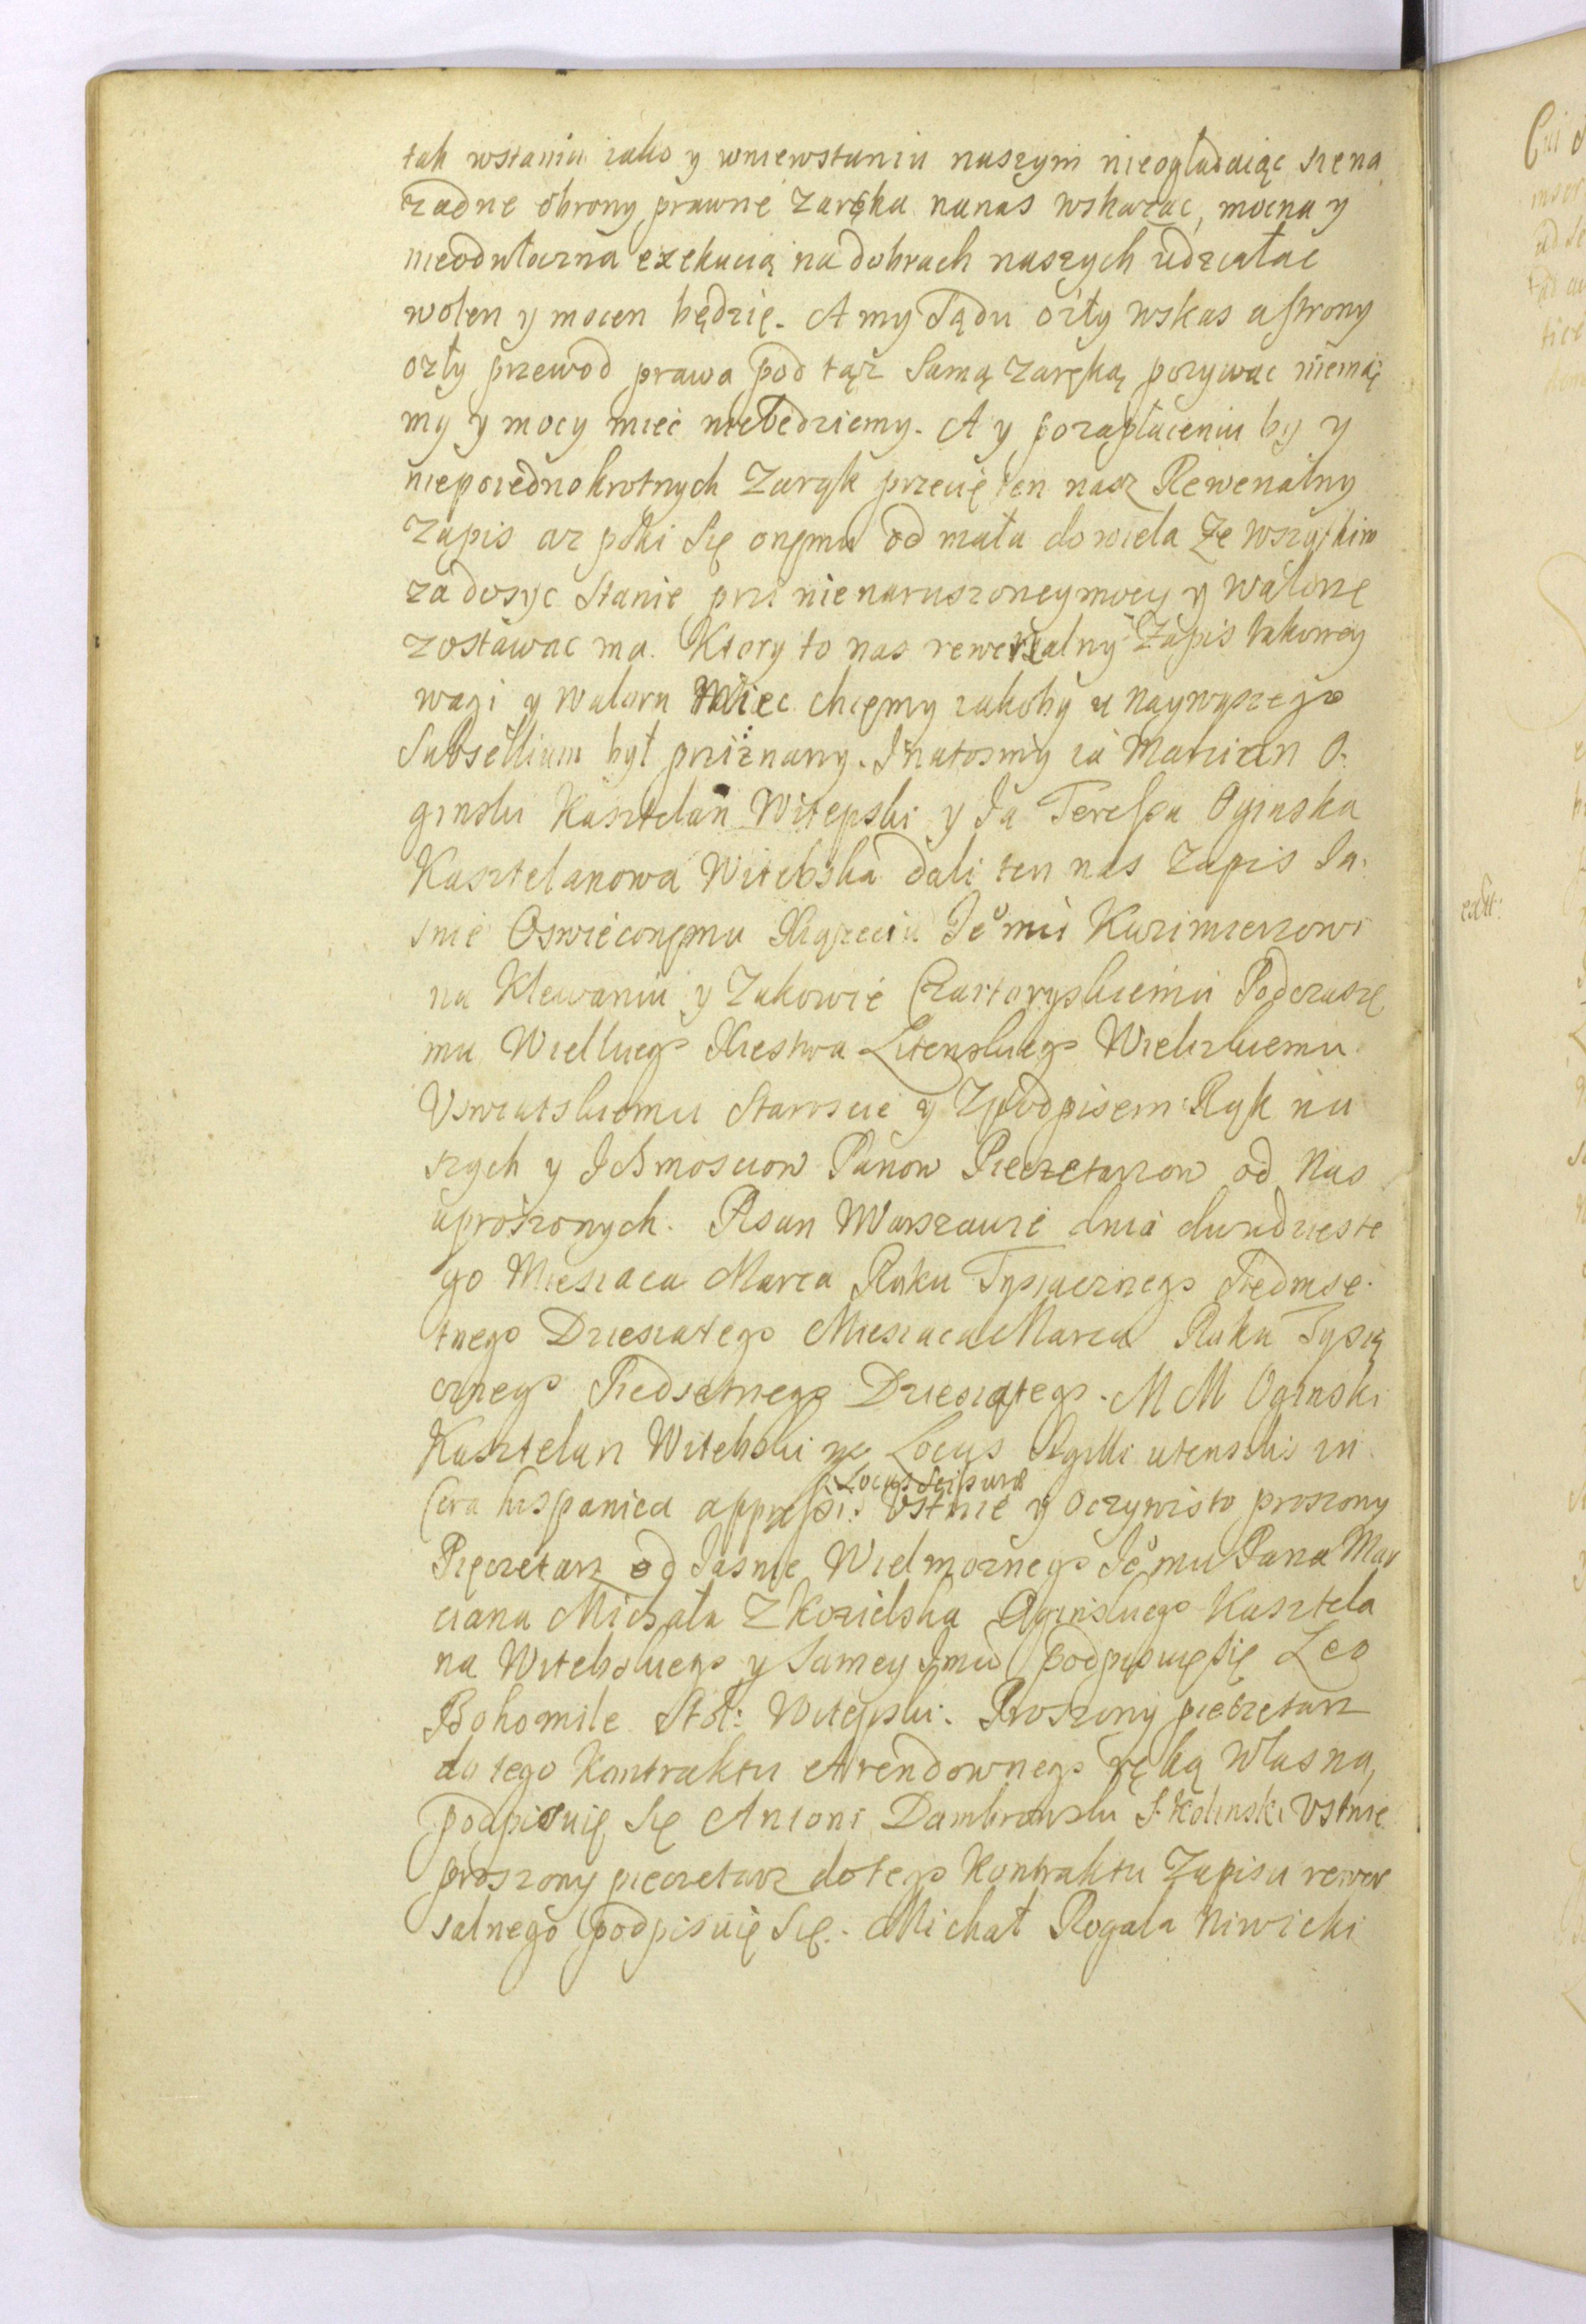 tak wstaniu iako y wniewstaniu naszym nieogladaiąc siena
zadne obrony prawne zaręka nanas wskazac, mocna y
nieodwłoczna exekucią na dobrach naszych udziałac
wolen y mocen będzię. A my Sądu ozły wskas astrony
ozły przewod prawa pod tąz Samą zaręką pozywac niemaię
my y mocy miec niebędziemy. A y pozapłaceniu by y
nieporednokrotnych Zaręk przecię ten nasz Rewersalny
Zapis az poki Się onęmu od mała do wiela Ze wszytkim
za dosyc Stanie przi nienaruszoneymocy y walorzę
zostawac ma. Ktory to nas rewersalny Zapis takowey
wagi y waloru Miec chcęmy iakoby u Naywyszego
Subsellium był prziznany. Inatosmy ia Marian O.
ginski Kasztelan Witepski y Ja Teressa Oginska
Kasztelanowa Witebska dali ten nas Zapis Ja.
snie Oswieconęmu Xiązęciu Jeo mci Kazimierzowi
na Klewaniu y Zukowie Czartoryskiemu Podczaszę
mu Wielkiego Xiestwa Litenskiego Wielizkiemu
Uswiatskiemu Staroscie y Zpodpisem Ręk na
szych y Ichmosciow Panow Pieczetarzow od Nas
uproszonych. Pisan Warszawie dnia dwudzieste
go Miesiaca Marca Roku Tysiacznego Siedmse.
tnego Dziesiatego Miesiaca Marca Roku Tysią
cznego Siedsetnego Dziesiątego. M M Oginski
Kasztelan Witebski Locus Sigilli utenskis in
Locus Scissurae
Cera hispanica appressi. Ustnie y Oczywisto proszony
Pięczetarz od Jasnie Wielmoznego Jeo mci Pana Mar
ciana Michała Z Kozielska Oginskiego Kasztela
na Witebskiego y Samey Jmci podpisuię się Leo
Bohomile Stol: Witepski. Proszony pieczętarz
do tego Kontraktu Arendownego ręką własną,
podpisuię Się Antoni Dambrowski S. Kolinski Ustnie
proszony pieczetarz dotego Kontraktu Zapisu rewer
salnego podpisuię Się. Michał Rogala Niwicki